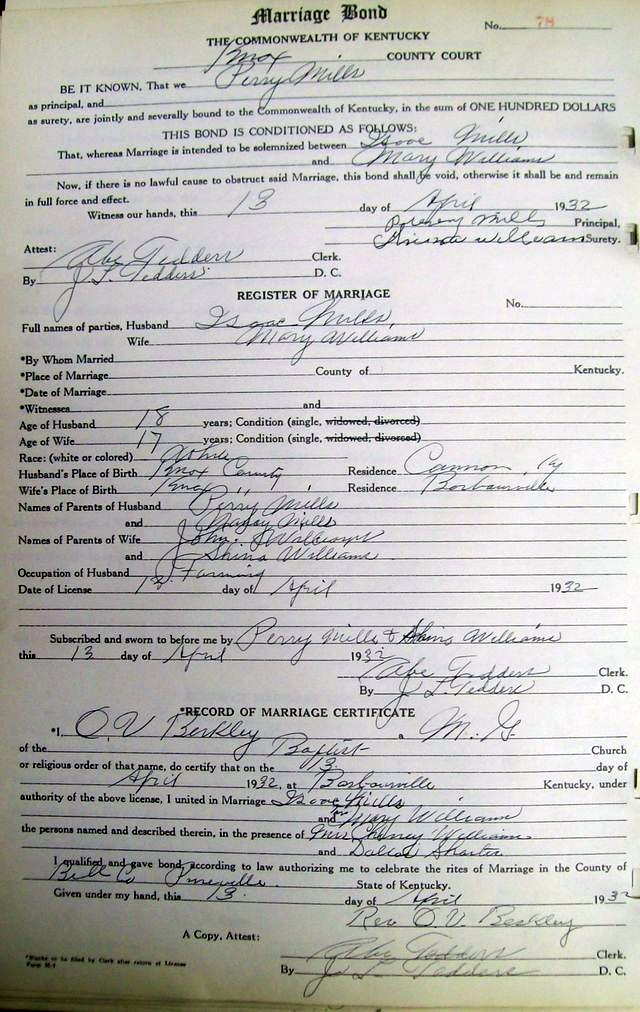 Marriage Bond
No. 78
THE COMMONWEALTH OF KENTUCKY
Knox COUNTY COURT
BE IT KNOWN, That we Perry Mills
as principal, and
as surety, are jointly and severally bound to the Commonwealth of Kentucky, in the sum of ONE HUNDRED DOLLARS
THIS BOND IS CONDITIONED AS FOLLOWS:
That, whereas Marriage is intended to be solemnized between Isaac Mills
and Mary Williams
Now, if there is no lawful cause to obstruct said Marriage, this bond shall be void, otherwise it shall be and remain
in full force and effect.
Witness our hands, this 13 day of April 1932
Mills Principal,
Williams Surety.
Attest:
Abe Tedders Clerk.
By J. L. Tedders D. C.
REGISTER OF MARRIAGE
No.
Full names of parties, Husband Isaac Mills,
Wife Mary Williams
*By Whom Married
*Place of Marriage County of Kentucky.
*Date of Marriage
*Witnesses and
Age of Husband 18 years; Condition (single, widowed, divorced)
Age of Wife 17 years; Condition (single, widowed, divorced)
Race: (white or colored) White
Husband's Place of Birth Knox County Residence Cannon, Ky
Wife's Place of Birth Knox " " Residence Barbourville
Names of Parents of Husband Perry Mills
and Mills
Names of Parents of Wife John Williams
and Shina Williams
Occupation of Husband Farming
Date of License 13 day of April 1932
Subscribed and sworn to before me by Perry Mills & Shina Williams
this 13 day of April 1932
Abe Tedders Clerk.
By J. L. Tedders D. C.
*RECORD OF MARRIAGE CERTIFICATE
*I, O. V. Berkley a M. G.
of the Baptist Church
or religious order of that name, do certify that on the 13 day of
April 1932, at Barbourville Kentucky, under
authority of the above license, I united in Marriage Isaac Mills
and Mary Williams
the persons named and described therein, in the presence of Williams
and
I qualified and gave bond according to law authorizing me to celebrate the rites of Marriage in the County of
Bell Co Pineville State of Kentucky.
Given under my hand, this 13 day of April 1932
Rev O. V. Berkley
A Copy, Attest:
Abe Tedders Clerk.
By J. L. Tedders D. C.
*Blanks to be filled by Clerk after return of License